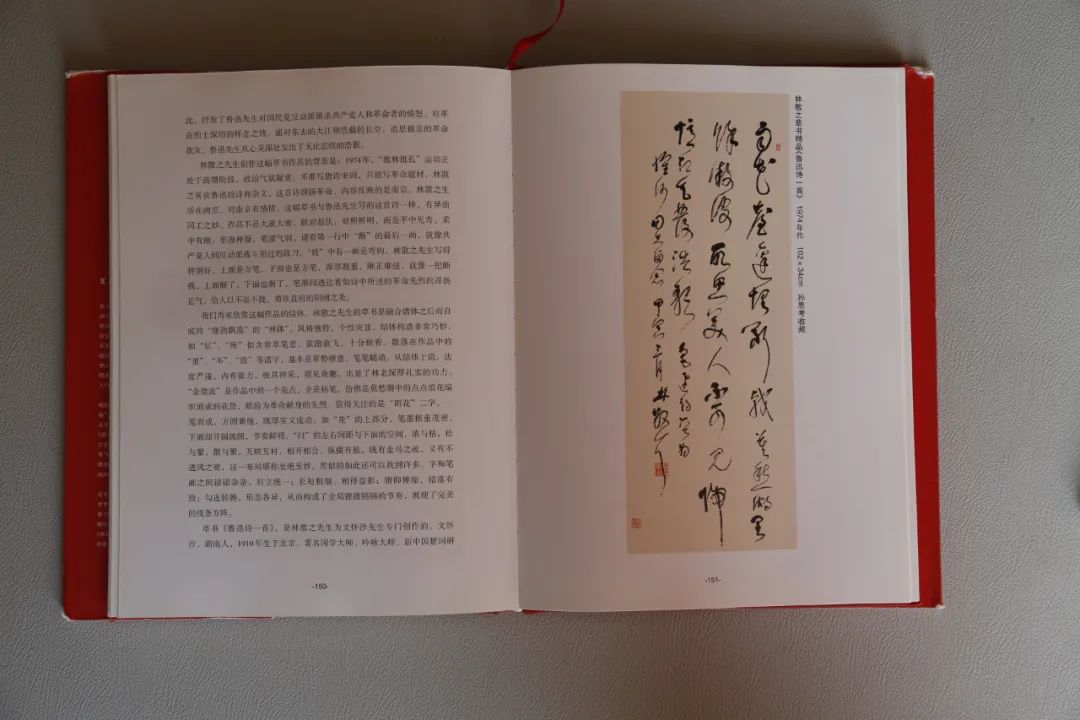 此，抒发了鲁迅先生对国民党反动派屠杀共产党人和革命者的愤怒，对革
命烈士深切的怀念之情。面对东去的大江和浩瀚的长空，追思被害的革命
战友，鲁迅先生从心灵深处发出了无比悲愤的浩歌。
林散之先生创作这幅草书作品的背景是：1974年，“批林批孔”运动正
处于高潮阶段，政治气氛凝重，不准写唐诗宋词，只能写革命题材。林散
之喜欢鲁迅的诗和杂文，这首诗颂扬革命，内容反映的是南京，林散之生
活在南京，对南京有感情，这幅草书与鲁迅先生写的这首诗一样，有异曲
同工之妙。作品不是大疏大密，跌宕起伏，对照鲜明，而是平中见奇，柔
中有刚，形散神凝，笔涩气润。请看第一行中“断”的最后一画，就像共
产党人同反动派战斗用过的战刀。“戟”中有一画是弯钩，林散之先生写得
特别好。上面是方笔，下面也是方笔，浑厚凝重，刚正雄强，就像一把断
戟，上面断了，下面也断了，笔墨间透达着如诗中所述的革命先烈的昂扬
正气，给人以不屈不挠、勇往直前的阳刚之美。
我们再来欣赏这幅作品的结体。林散之先生的草书是融合诸体之后而自
成的“雍韵飘流”的“林体”，风格独特，个性突显，结体构造非常巧妙。
如“忆”、“所”似含章草笔意，欲跑欲飞，十分耐看。散落在作品中的
“里”、“不”、“浩”等诸字，基本是草势楷意，笔笔蠕动。从结体上说，法
度严谨，内有张力，极具神采，迥见奇趣，出显了林老深厚扎实的功力。
“余微波”是作品中的一个亮点，全是枯笔，仿佛是莫愁湖中的点点浪花编
织而成的花篮，献给为革命献身的先烈。值得关注的是“雨花”二字，一
笔而成，方圆兼施，既厚实又流动，如“花”的上部分，笔墨粗重茂密，
下面却开阔疏朗，节奏鲜明。“归”的左右间距与下面的空间，浓与枯，松
与紧，散与聚，互映互衬，相开相合，纵横有疏，既有走马之疏，又有不
透风之密，这一布局堪称至绝至妙，类似的如此还可以找到许多。字和笔
画之间错错杂杂，对立统一；长短粗细，相得益彰；俯仰伸缩，错落有
致；勾连转换，形态各异，从而构成了全局铿铿锵锵的节奏，展现了完美
的线条方阵。
草书《鲁迅诗一首》，是林散之先生为文怀沙先生专门创作的。文怀
沙，湖南人，1910年生于北京。著名国学大师，吟咏大师，新中国楚词研
-150-
林散之草书精品《鲁迅诗一首》 1974年作 102×34cm 孙思考收藏
雨花台边埋断戟莫愁湖里
余微波所思美人不可见归
忆江天发浩歌
怀沙
甲寅
林散耳
-151-